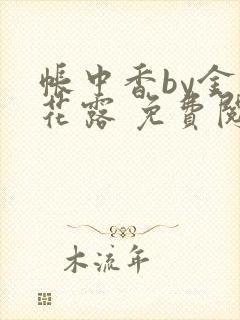 帳中香by金
花露 免費閱
木流年